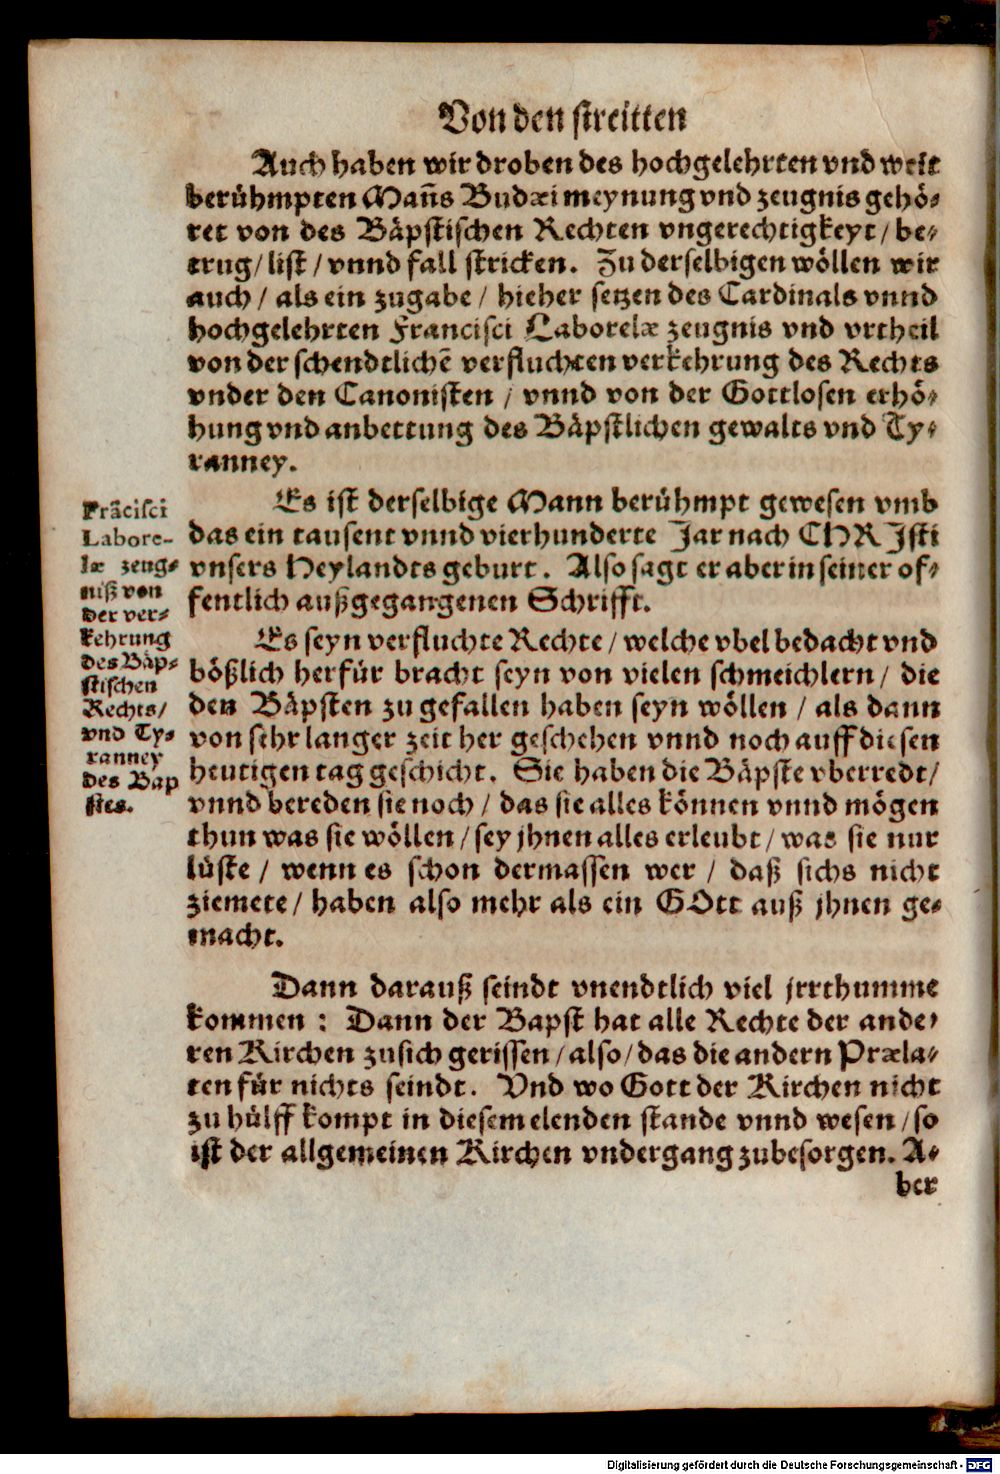 Von den streitten
Auch haben wir droben des hochgelehrten vnd weit
berühmpten Mañs Budæi meynung vnd zeugnis gehö-
ret von des Bäpstischen Rechten vngerechtigkeyt/ be-
trug/ list/ vnnd fall stricken. Zu derselbigen wöllen wir
auch/ als ein zugabe/ hieher setzen des Cardinals vnnd
hochgelehrten Francisci Laborelæ zeugnis vnd vrtheil
von der schendtlichē verfluchten verkehrung des Rechts
vnder den Canonisten/ vnnd von der Gottlosen erhö-
hung vnd anbettung des Bäpstlichen gewalts vnd Ty-
ranney.
Es ist derselbige Mann berühmpt gewesen vmb
das ein tausent vnnd vierhunderte Jar nach CHRJsti
vnsers Heylandts geburt. Also sagt er aber in seiner of-
fentlich außgegangenen Schrifft.
Frãcisci
Labore-
læ zeug-
niß von
der ver-
kehrung
des Bäp-
stischen
Rechts/
vnd Ty-
ranney
des Bap
stes.
Es seyn verfluchte Rechte/ welche vbel bedacht vnd
bößlich herfür bracht seyn von vielen schmeichlern/ die
den Bäpsten zu gefallen haben seyn wöllen/ als dann
von sehr langer zeit her geschehen vnnd noch auff diesen
heutigen tag geschicht. Sie haben die Bäpste vberredt/
vnnd bereden sie noch/ das sie alles können vnnd mögen
thun was sie wöllen/ sey jhnen alles erleubt/ was sie nur
lüste/ wenn es schon dermassen wer/ daß sichs nicht
ziemete/ haben also mehr als ein GOtt auß jhnen ge-
macht.
Dann darauß seindt vnendtlich viel jrrthumme
kommen: Dann der Bapst hat alle Rechte der ande-
ren Kirchen zusich gerissen/ also/ das die andern Præla-
ten für nichts seindt. Vnd wo Gott der Kirchen nicht
zu hülff kompt in diesem elenden stande vnnd wesen/ so
ist der allgemeinen Kirchen vndergang zubesorgen. A-
ber
Digitalisierung gefördert durch die Deutsche Forschungsgemeinschaft - DFG